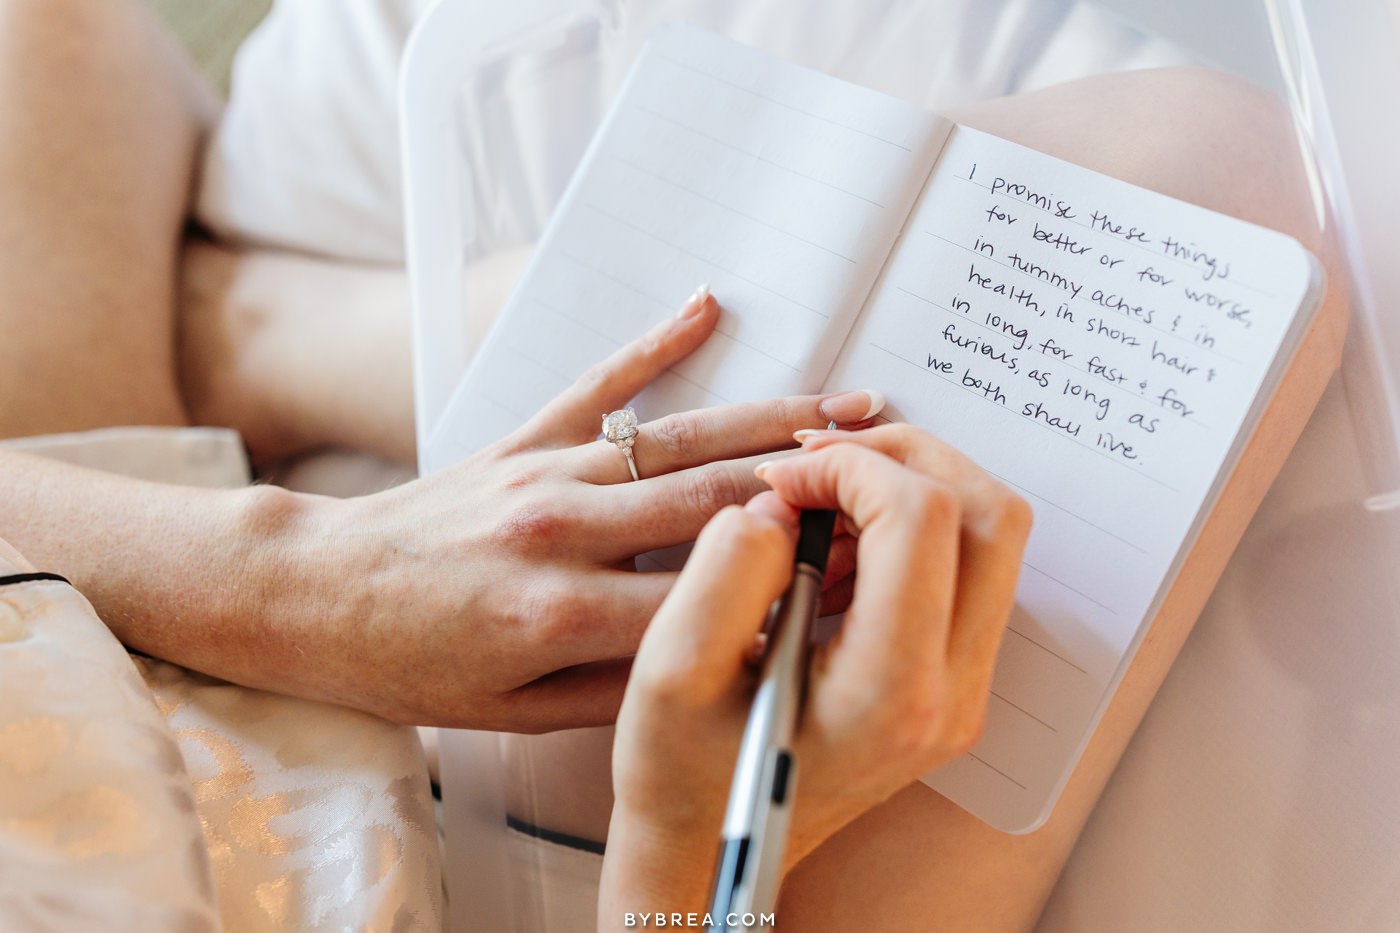 I promise these things
for better or for worse,
in tummy aches & in
health, in short hair &
in long, for fast & for
furious, as long as
we both shall live.
BYBREA.COM